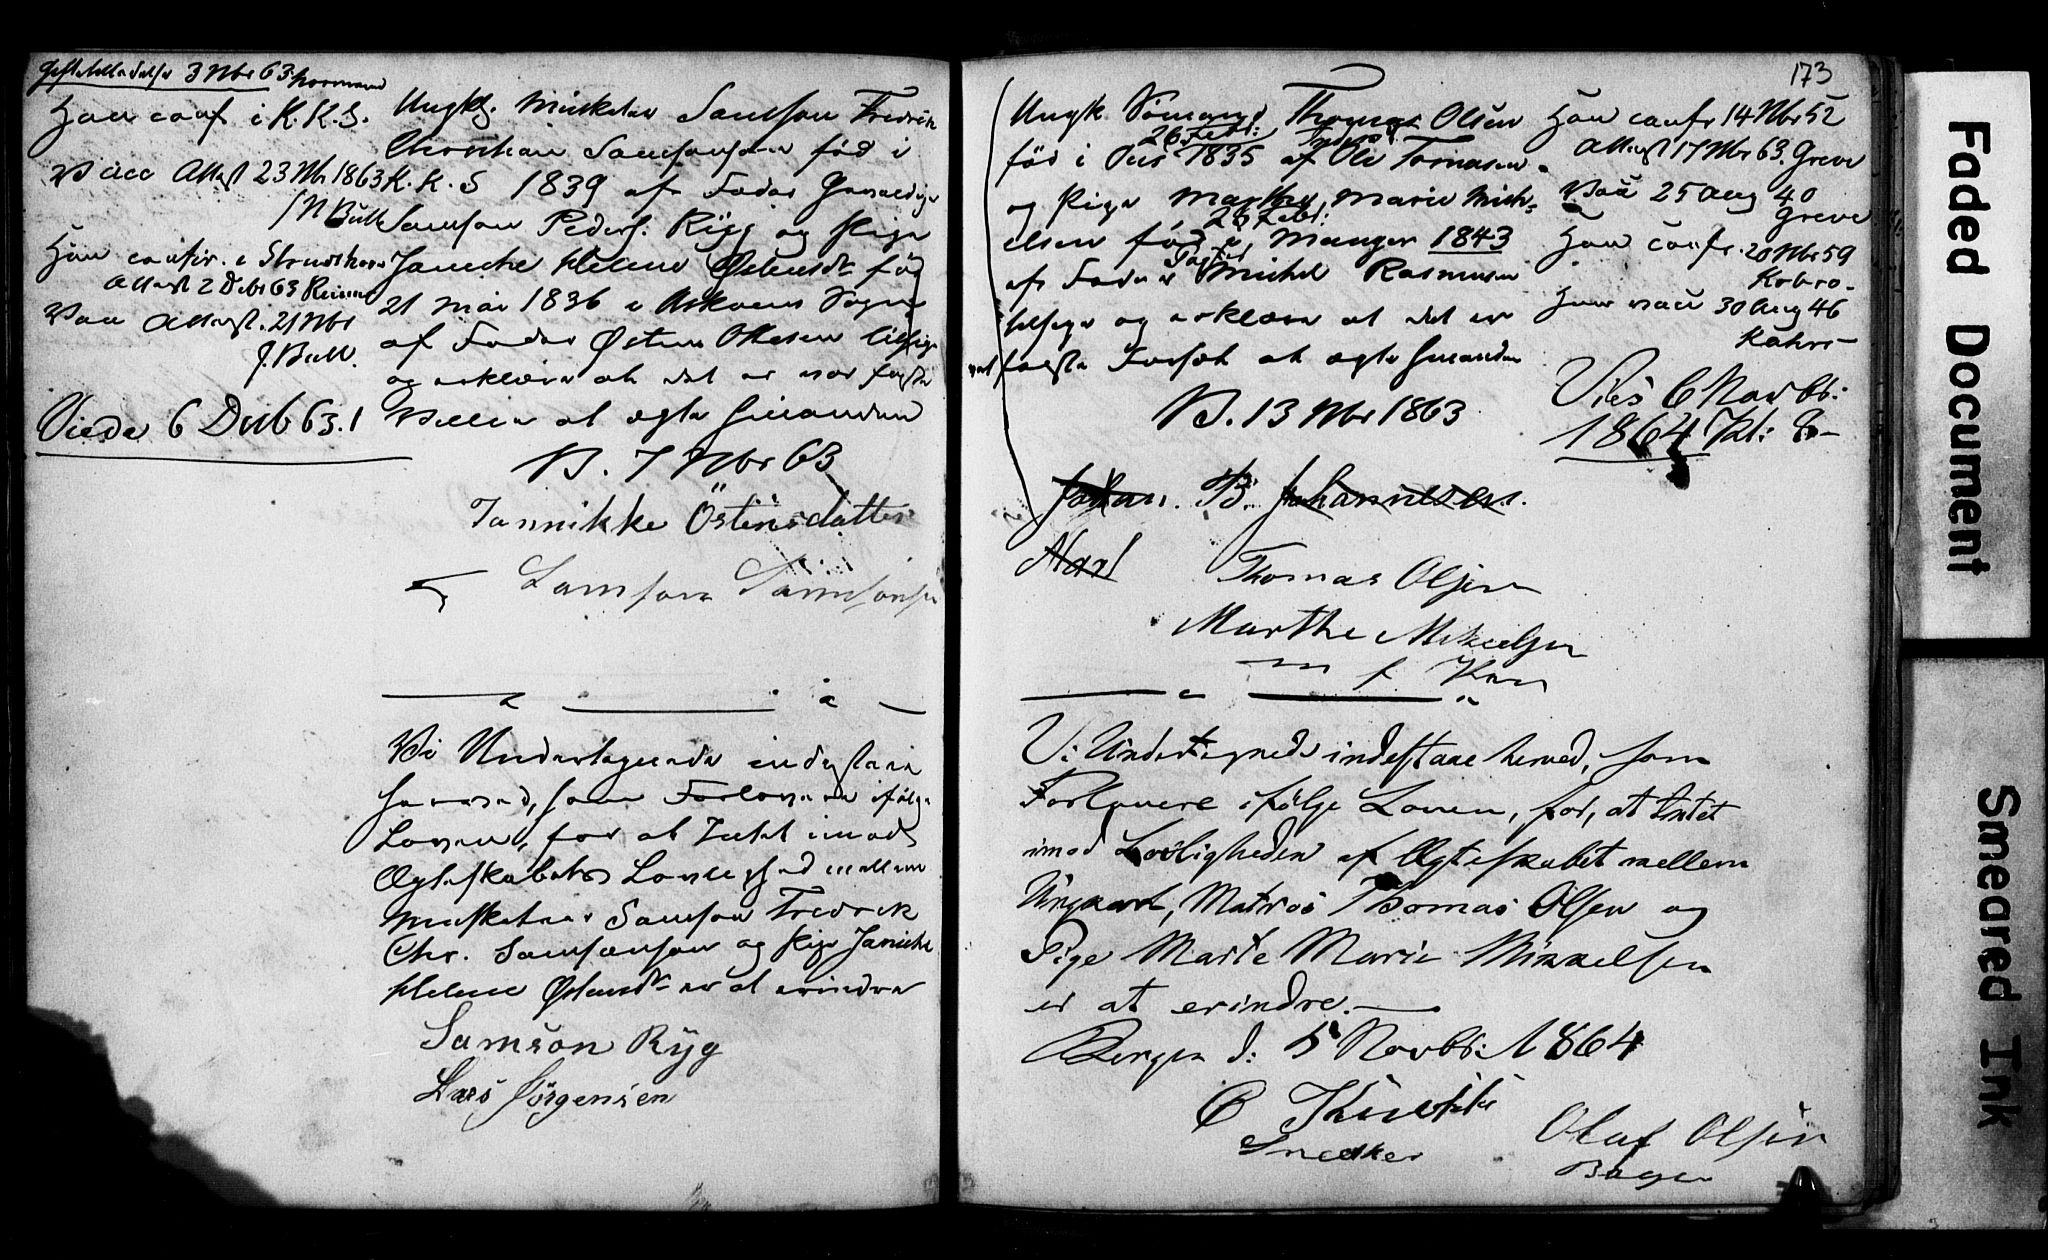 3 Nbr 63
Han conf i K.K.S.
Vacc Attest 23 Nbr 1863
J N Bull
Hun confir. i
Attest 2 Debr 63
Vac Attest. 21 Nbr
J. Bull.
Viede 6 Decb 63.1
Ungk. Musketeer Samson Fredrik
Christian Samsonsen fød i
K.K.S 1839 af Fader
Samson Peders. Rÿg og Pige
Janicke Helene Østensdr fød
21 Mai 1836 i Askoens Sogn
af Fader Østen Ollesen
og erklære at det er vor faste
Villie at ægte hinanden
B. 7 Nbr 63
Jannikke Östensdatter
Samson Samsonsen
Vi Undertegnede indestaae
herved, som Forlovere ifølge
Loven, for at Intet imod
Ægteskabets Lovlighed mellem
Musketeer Samson Fredrik
Chr. Samsonsen og Pige Janicke
Helene Østensdr er at erindre
Samson Rÿg
Lars Jörgensen
173
Ungk. Sömand Thomas Olsen
26 Febr:
fød i 1835 af Ole Tomasen
og Pige Marthe Marie Mich-
26 Febr:
elsen fød i Manger 1843
af Fader Michel Rasmusen
og erklære at det er
vort faste Forsæt at ægte hinanden
B. 13 Nbr 1863
Johan. B. Johannesen.
Thomas Olsen
Marthe Mikkelsen
m f Pen
Vi Undertegnede indestaae herved, som
Forlovere ifölge Loven, for, at Intet
imod Lovligheden af Ægteskabet mellem
Ungkarl, Matros Thomas Olsen og
Pige Marte Marie Mikkelsen
er at erindre.
Bergen d: 5 Novbr: 1864
C
Snedker
Olaf Olsen
Bager
Han confr 14 Nbr 52
Attest 17 Nbr 63. Greve
Vac 25 Aug 40
Greve
Hun confr. 20 Nbr 59
Kobro.
Hun vacc 30 Aug 46
Kahrs
Viés 6 Novbr:
1864 Kl: 8
Faded Document
Smeared Ink